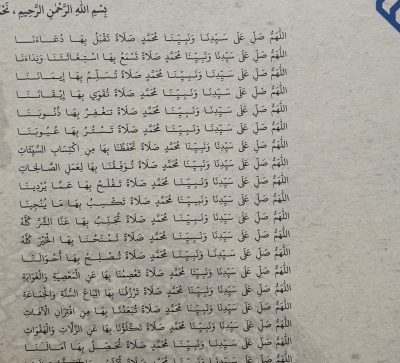 بِسْمِ اللهِ الرَّحْمٰنِ الرَّحِيمِ ،
اللَّهُمَّ صَلِّ عَلَى سَيِّدِنَا وَنَبِيِّنَا مُحَمَّدٍ صَلَاةً تَقْبَلُ بِهَا دُعَاءَنَا
اللَّهُمَّ صَلِّ عَلَى سَيِّدِنَا وَنَبِيِّنَا مُحَمَّدٍ صَلَاةً تَسْمَعُ بِهَا اسْتِغَاثَتَنَا وَنِدَاءَنَا
اللَّهُمَّ صَلِّ عَلَى سَيِّدِنَا وَنَبِيِّنَا مُحَمَّدٍ صَلَاةً تُسَلِّمُ بِهَا إِيمَانَنَا
اللَّهُمَّ صَلِّ عَلَى سَيِّدِنَا وَنَبِيِّنَا مُحَمَّدٍ صَلَاةً تُقَوِّي بِهَا إِيقَانَنَا
اللَّهُمَّ صَلِّ عَلَى سَيِّدِنَا وَنَبِيِّنَا مُحَمَّدٍ صَلَاةً تَغْفِرُ بِهَا ذُنُوبَنَا
اللَّهُمَّ صَلِّ عَلَى سَيِّدِنَا وَنَبِيِّنَا مُحَمَّدٍ صَلَاةً تَسْتُرُ بِهَا عُيُوبَنَا
اللَّهُمَّ صَلِّ عَلَى سَيِّدِنَا وَنَبِيِّنَا مُحَمَّدٍ صَلَاةً تَحْفَظُنَا بِهَا مِنِ اكْتِسَابِ السَّيِّئَاتِ
اللَّهُمَّ صَلِّ عَلَى سَيِّدِنَا وَنَبِيِّنَا مُحَمَّدٍ صَلَاةً تُوَفِّقُنَا بِهَا لِعَمَلِ الصَّالِحَاتِ
اللَّهُمَّ صَلِّ عَلَى سَيِّدِنَا وَنَبِيِّنَا مُحَمَّدٍ صَلَاةً بِهَا عَمَّا يُرْدِينَا
اللَّهُمَّ صَلِّ عَلَى سَيِّدِنَا وَنَبِيِّنَا مُحَمَّدٍ صَلَاةً تُكْسِبُ بِهَا مَا يُنْجِينَا
اللَّهُمَّ صَلِّ عَلَى سَيِّدِنَا وَنَبِيِّنَا مُحَمَّدٍ صَلَاةً تُجَنِّبُ بِهَا عَنَّا الشَّرَّ كُلَّهُ
اللَّهُمَّ صَلِّ عَلَى سَيِّدِنَا وَنَبِيِّنَا مُحَمَّدٍ صَلَاةً تَمْنَحُنَا بِهَا الْخَيْرَ كُلَّهُ
اللَّهُمَّ صَلِّ عَلَى سَيِّدِنَا وَنَبِيِّنَا مُحَمَّدٍ صَلَاةً تُصْلِحُ بِهَا أَحْوَالَنَا
اللَّهُمَّ صَلِّ عَلَى سَيِّدِنَا وَنَبِيِّنَا مُحَمَّدٍ صَلَاةً تَعْصِمُنَا بِهَا عَنِ الْمَعْصِيَةِ وَالْغَوَايَةِ
اللَّهُمَّ صَلِّ عَلَى سَيِّدِنَا وَنَبِيِّنَا مُحَمَّدٍ صَلَاةً تَرْزُقُنَا بِهَا اتِّبَاعَ السُّنَّةِ وَالْجَمَاعَةِ
اللَّهُمَّ صَلِّ عَلَى سَيِّدِنَا وَنَبِيِّنَا مُحَمَّدٍ صَلَاةً تُبَعِّدُنَا بِهَا مِنِ اقْتِرَانِ الْآفَاتِ
اللَّهُمَّ صَلِّ عَلَى سَيِّدِنَا وَنَبِيِّنَا مُحَمَّدٍ صَلَاةً تَكْلَؤُنَا بِهَا عَنِ الزَّلَّاتِ وَالْهَفَوَاتِ
اللَّهُمَّ صَلِّ عَلَى سَيِّدِنَا وَنَبِيِّنَا مُحَمَّدٍ صَلَاةً تُحَصِّلُ بِهَا آمَالَنَا